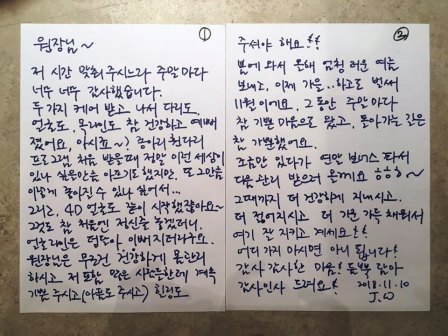 ①
원장님~
저 시간 맞춰 주시느라 주말마다
너무 너무 감사했습니다.
두가지 케어 받고 나서 다리도,
얼굴도, 목라인도 참 건강하고 예뻐
졌어요, 아시죠~) 종아리 관리
프로그램 처음 받을때 정말 이런 세상이
있나 싶을만큼 아프기도 했지만, 또 그만큼
이렇게 좋아질 수 있나 싶어서...
그리고, 40 얼굴도 같이 시작했잖아요~
그것도 참 처음엔 저신줄 놓겠더니,
얼굴라인은 더더욱 이뻐지더라구요.
원장님은 무조건 건강하게 몸관리
하시고, 저 포함 많은 사람들한테 계속
기쁨 주시고(아픔도 주시고) 힐링도
②
주셔야 해요!!
봄에 와서 올해 엄청 더운 여름
보내고, 이제 가을..하고도 벌써
11월이에요. 그동안 주말마다
참 기쁜 마음으로 왔고, 돌아가는 길은
참 가뿐했어요.
조금만 있다가 연말 보너스 타서
다음 관리 받으러 올께요 ㅎㅎㅎ~
그때까지 더 건강하게 지내시고.
더 젊어지시고 더 기운 가득 채워서
여기 잘 지키고 계세요!!
어디 가지 마시면 아니 됩니다!
감사 감사한 마음! 듬뿍 담아
감사인사 드려요! 2018.11.10
J.W